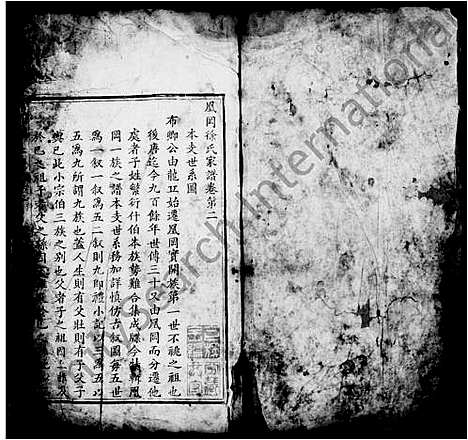 凰岡徐氏家譜卷第二
本支世系圖
布卿公由龍江始遷凰岡實開族第一世不祧之祖也
後唐迄今九百餘年世傳三十又由凰岡而分遷他
處者子姓繁衍什伯本族勢難合集成牒今社輯凰
岡一族之譜本支世系務加詳慎仿古叙圖每五世
爲一叙一叙爲五二叙則九即禮小記以三爲五以
五爲九所謂九族也蓋人生則有父壯則有子父子
與己此小宗伯三族之別也父者子之祖因上推
於己之祖子者父之孫因